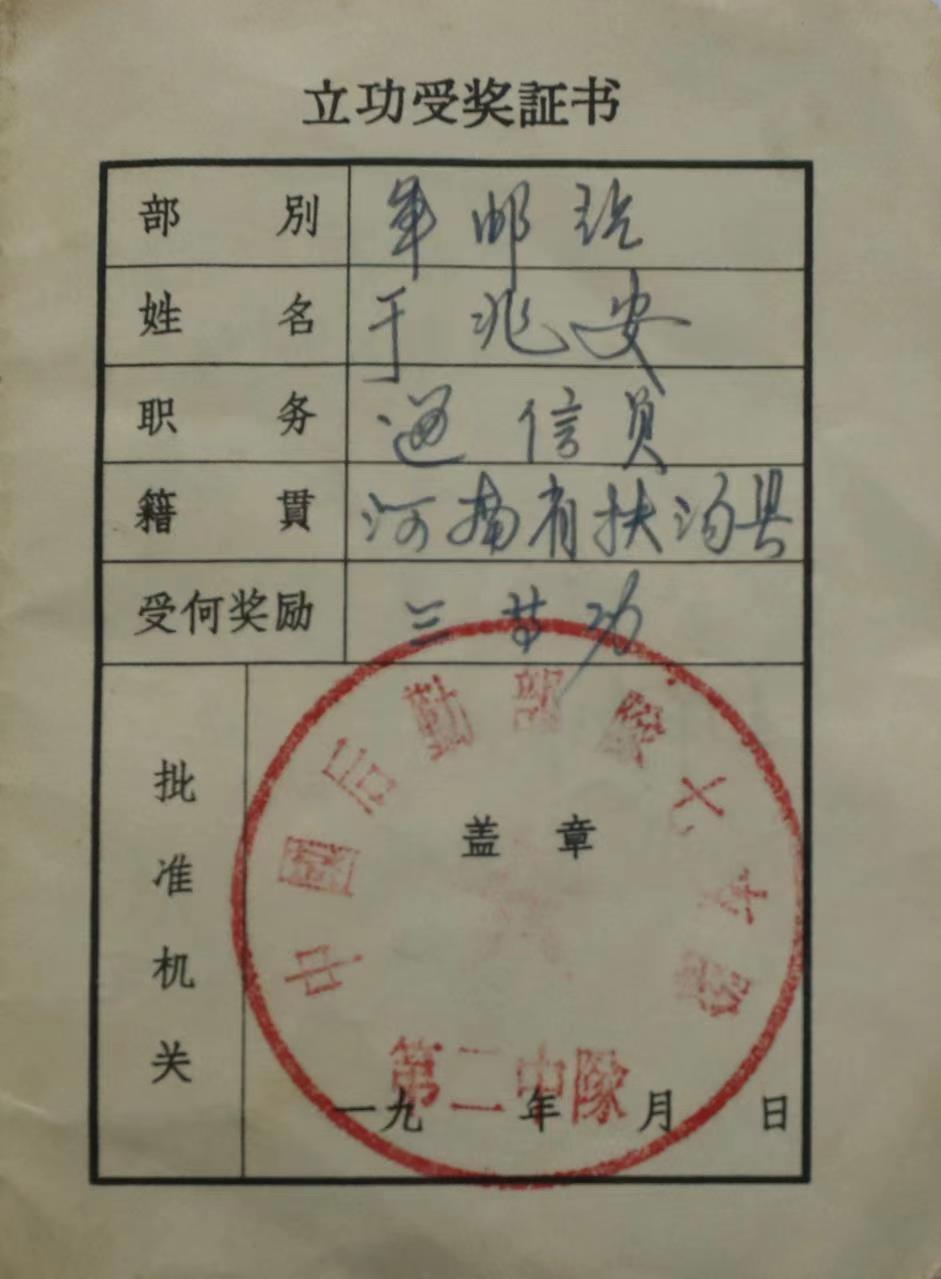 立功受奖証书
部别 军邮班
姓名 于兆安
职务 通信员
籍貫 河南省扶沟县
受何奖励 三等功
批准机关
盖章
中國后勤部隊大
第二中隊
一九 年 月 日